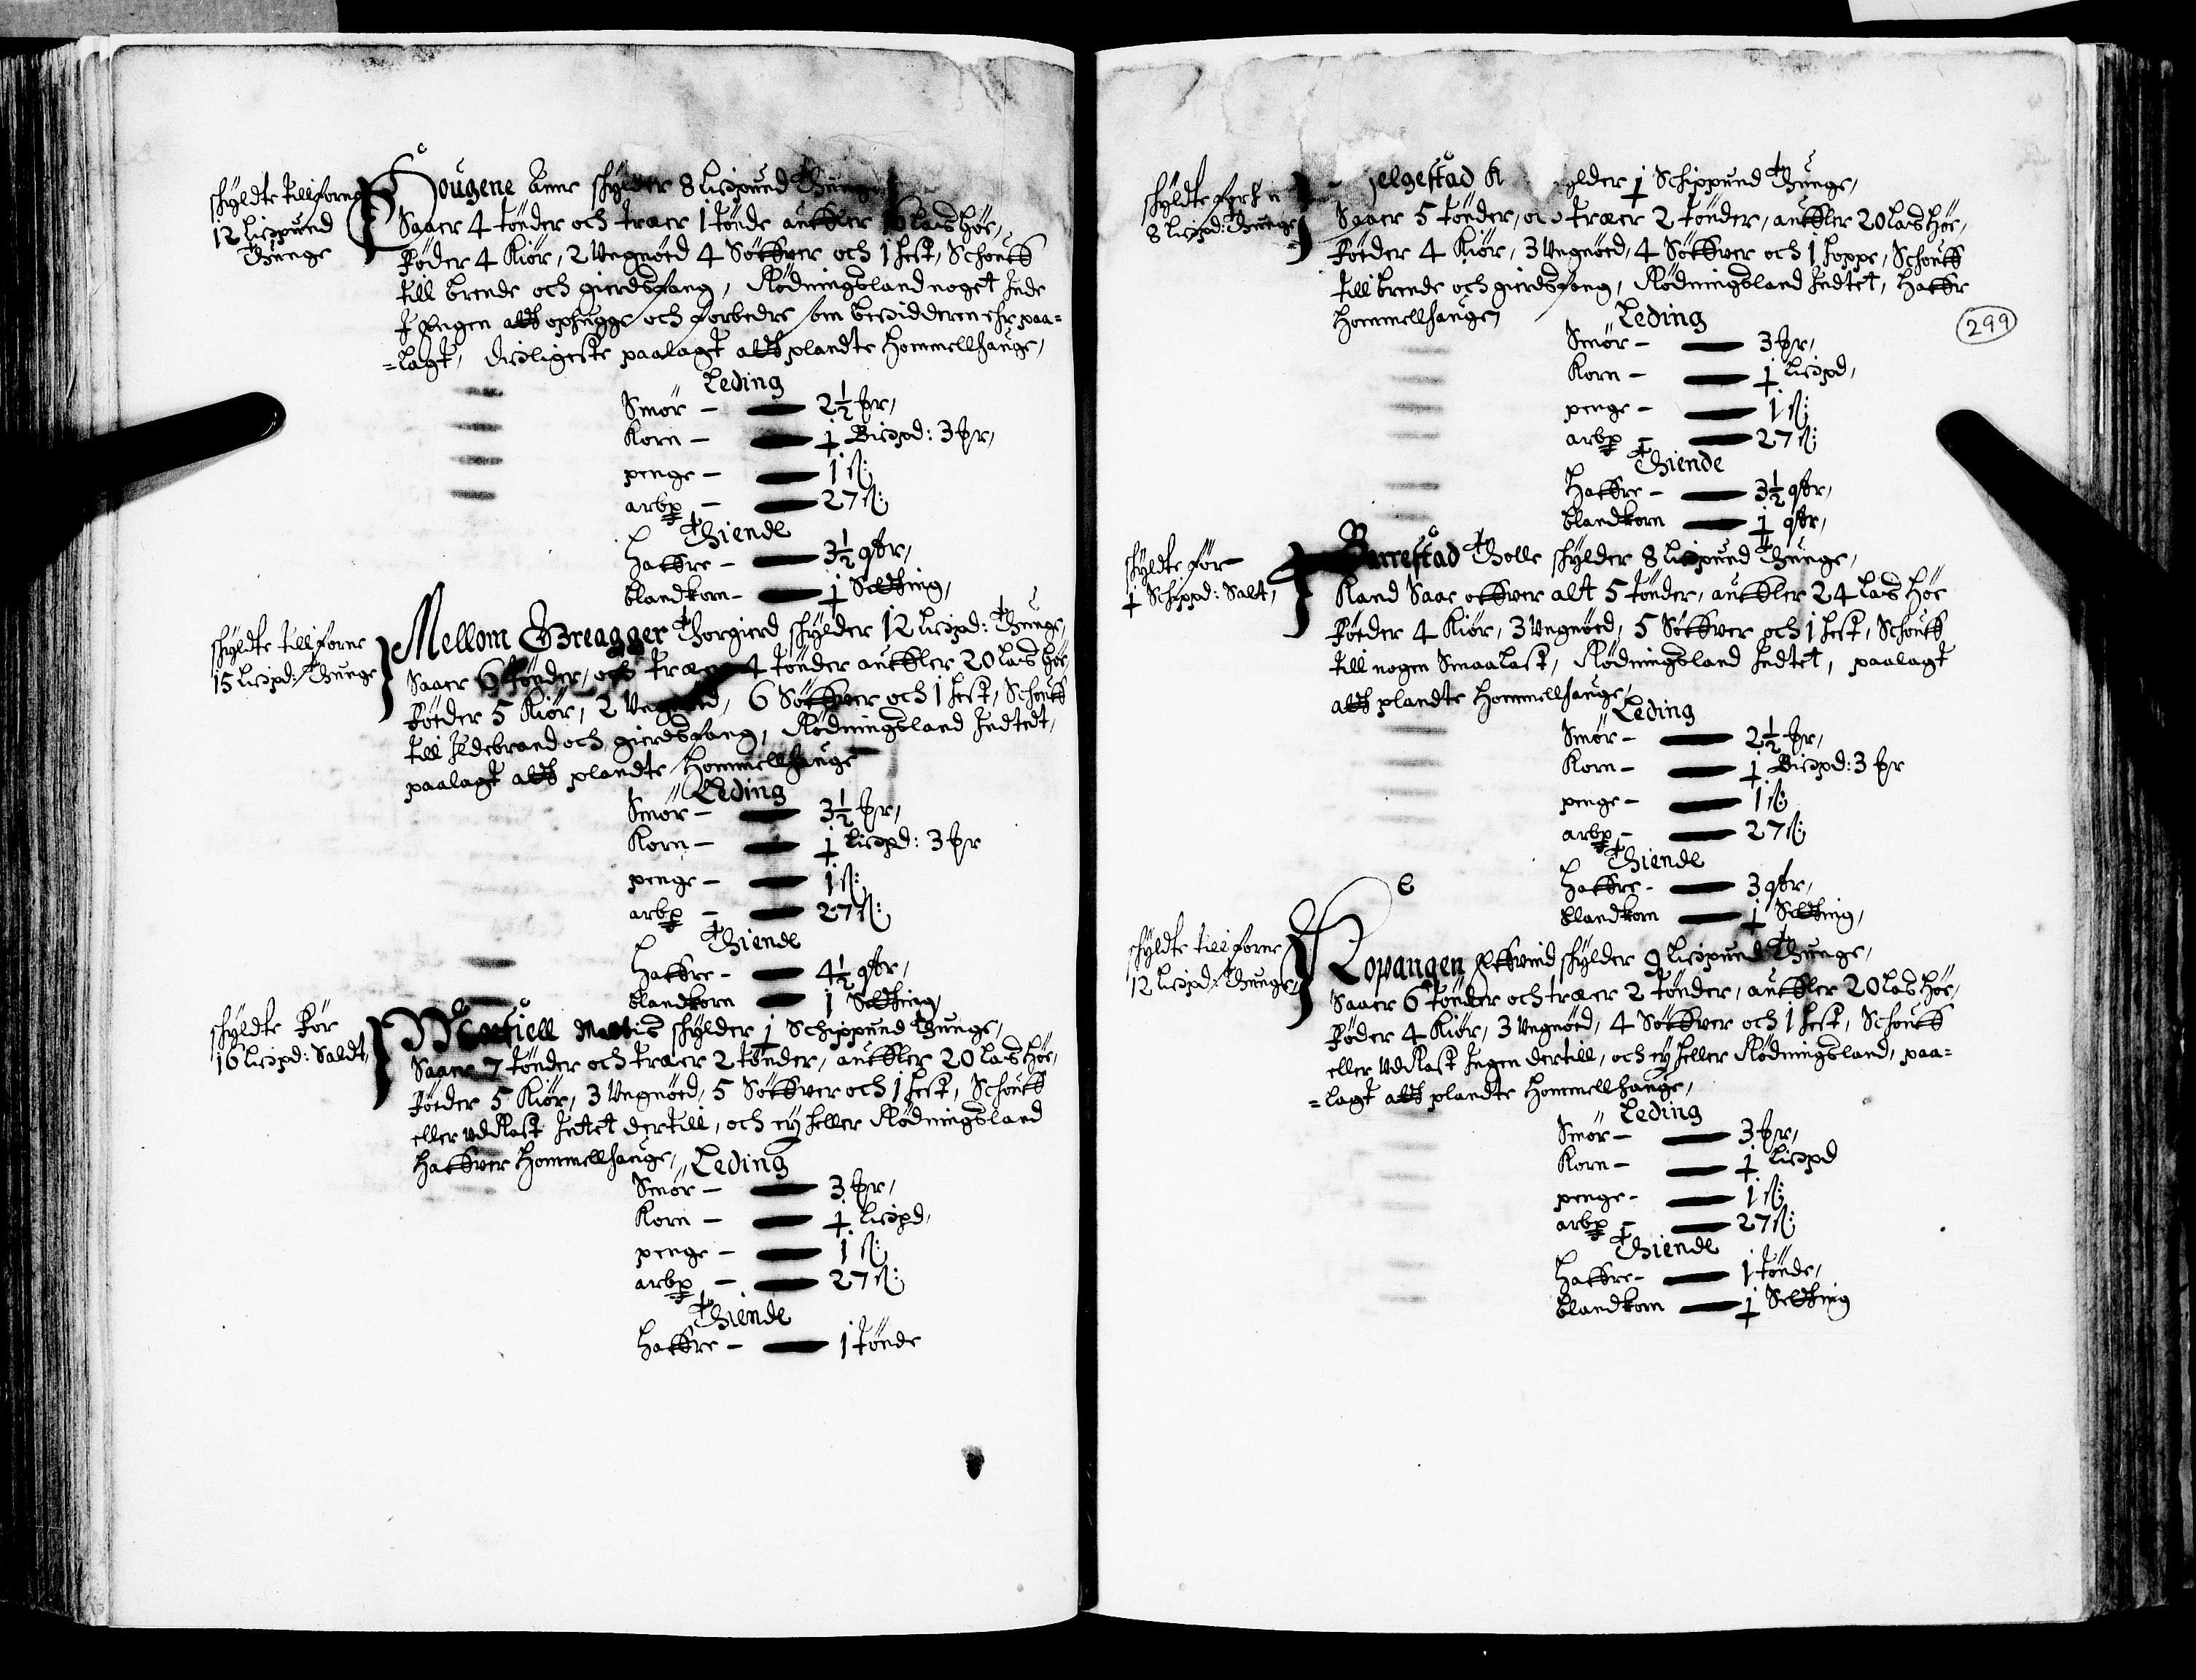 schyldte tillforne
12 Lispund
Thunge
Hougene Anne schylder 8 Lispund Thunge
Saaer 4 tønder och træer 1 tønde auffler 16 Las Høe,
Føder 4 Kiør, 2 Ungnød 4 Søffver och 1 Hest, Schouff
till brende och gierdsfang, Rødningsland noget Inde
I Engen att ophugge och forbedre som besidderen ehr paa=
=lagt, disligeste paalagt att plandte Hommellhauge,
Leding
Smør — 2½ pr,
Korn — 1 Bispd: 3 pr,
penge — 1 ß:
arbp — 27 ß:
Thiende
Haffre — 3½ qtr,
blandkorn — 1 Setting,
schyldte tillforne
15 Lispd: Thunge
Mellom Greagger Thorgierd schylder 12 Lispd: Thunge,
Saaer 6 tønder, och træer 4 tønder auffler 20 Las Høe,
Føeder 5 Kiør, 2 Ungnød, 6 Søffver och 1 Hest, Schouff
till Ildebrand och gierdsfang, Rødningsland Indtedt,
paalagt att plandte Hommellhauge
Leding
Smør — 3½ pr,
Korn — 1 Lispd: 3 pr
penge — 1 ß:
arbp — 27 ß:
Thiende
Haffre — 4½ qtr,
blandkorn 1 Setting,
schyldte Før
16 Lispd: Saldt,
Mattis schylder 1 Schippund Thunge,
Saaer 7 tønder och træer 2 tønder, auffler 20 Las Høe,
Føeder 5 Kiør, 3 Ungnød, 5 Søffver och 1 Hest, Schouff
eller vdRast Intet dertill, och ey heller Rødningsland
haffver Hommellhauge,
Leding
Smør — 3 pr,
Korn — 1 Lispd,
penge — 1 ß:
arbp — 27 ß:
Thiende
Haffre — 1 tønde
299
schyldte
8 Lispd: Thunge
jelgestad K ylder 1 Schippund Thunge,
Saaer 5 tønder, och træer 2 tønder, auffler 20 Las Høe,
Føeder 4 Kiør, 3 Ungnød, 4 Søffver och 1 Hoppe, Schouff
till brende och gierdsfang, Rødningsland Indtet, Haffr
Hommellhauge,
Leding
Smør — 3 pr,
Korn — 1 Lispd,
penge — 1 ß:
arbp — 27 ß:
Thiende
Haffre — 3½ qtr,
blandkorn — 1 qtr,
schyldte før
1 Schippd: Salt,
Barrestad Tholle schylder 8 Lispund Thunge,
Kand Saae offver alt 5 tønder, auffler 24 Las Høe
Føeder 4 Kiør, 3 Ungnød, 5 Søffver och 1 Hest, Schouff
till nogen Smaalast, Rødningsland Indtet, paalagt
att plandte Hommellhauge,
Leding
Smør — 2½ pr,
Korn — 1 Bispd: 3 pr
penge — 1 ß:
arbp — 27 ß:
Thiende
Haffre — 3 qtr,
blandkorn — 1 Setting,
schyldte tillforne
12 Lispd: Thunge,
Kopangen Effvind schylder 9 Lispund Thunge,
Saaer 6 tønder och træer 2 tønder, auffler 20 Las Høe,
Føder 4 Kiør, 3 Ungnød, 4 Søffver och 1 Hest, Schouff
eller vdRast Ingen dertill, och ey heller Rødningsland, paa=
=lagt att plandte Hommellhauge,
Leding
Smør — 3 pr,
Korn — 1 Lispd
penge — 1 ß:
arbp — 27 ß:
Thiende
Haffre — 1 tønde,
blandkorn — 1 Setting